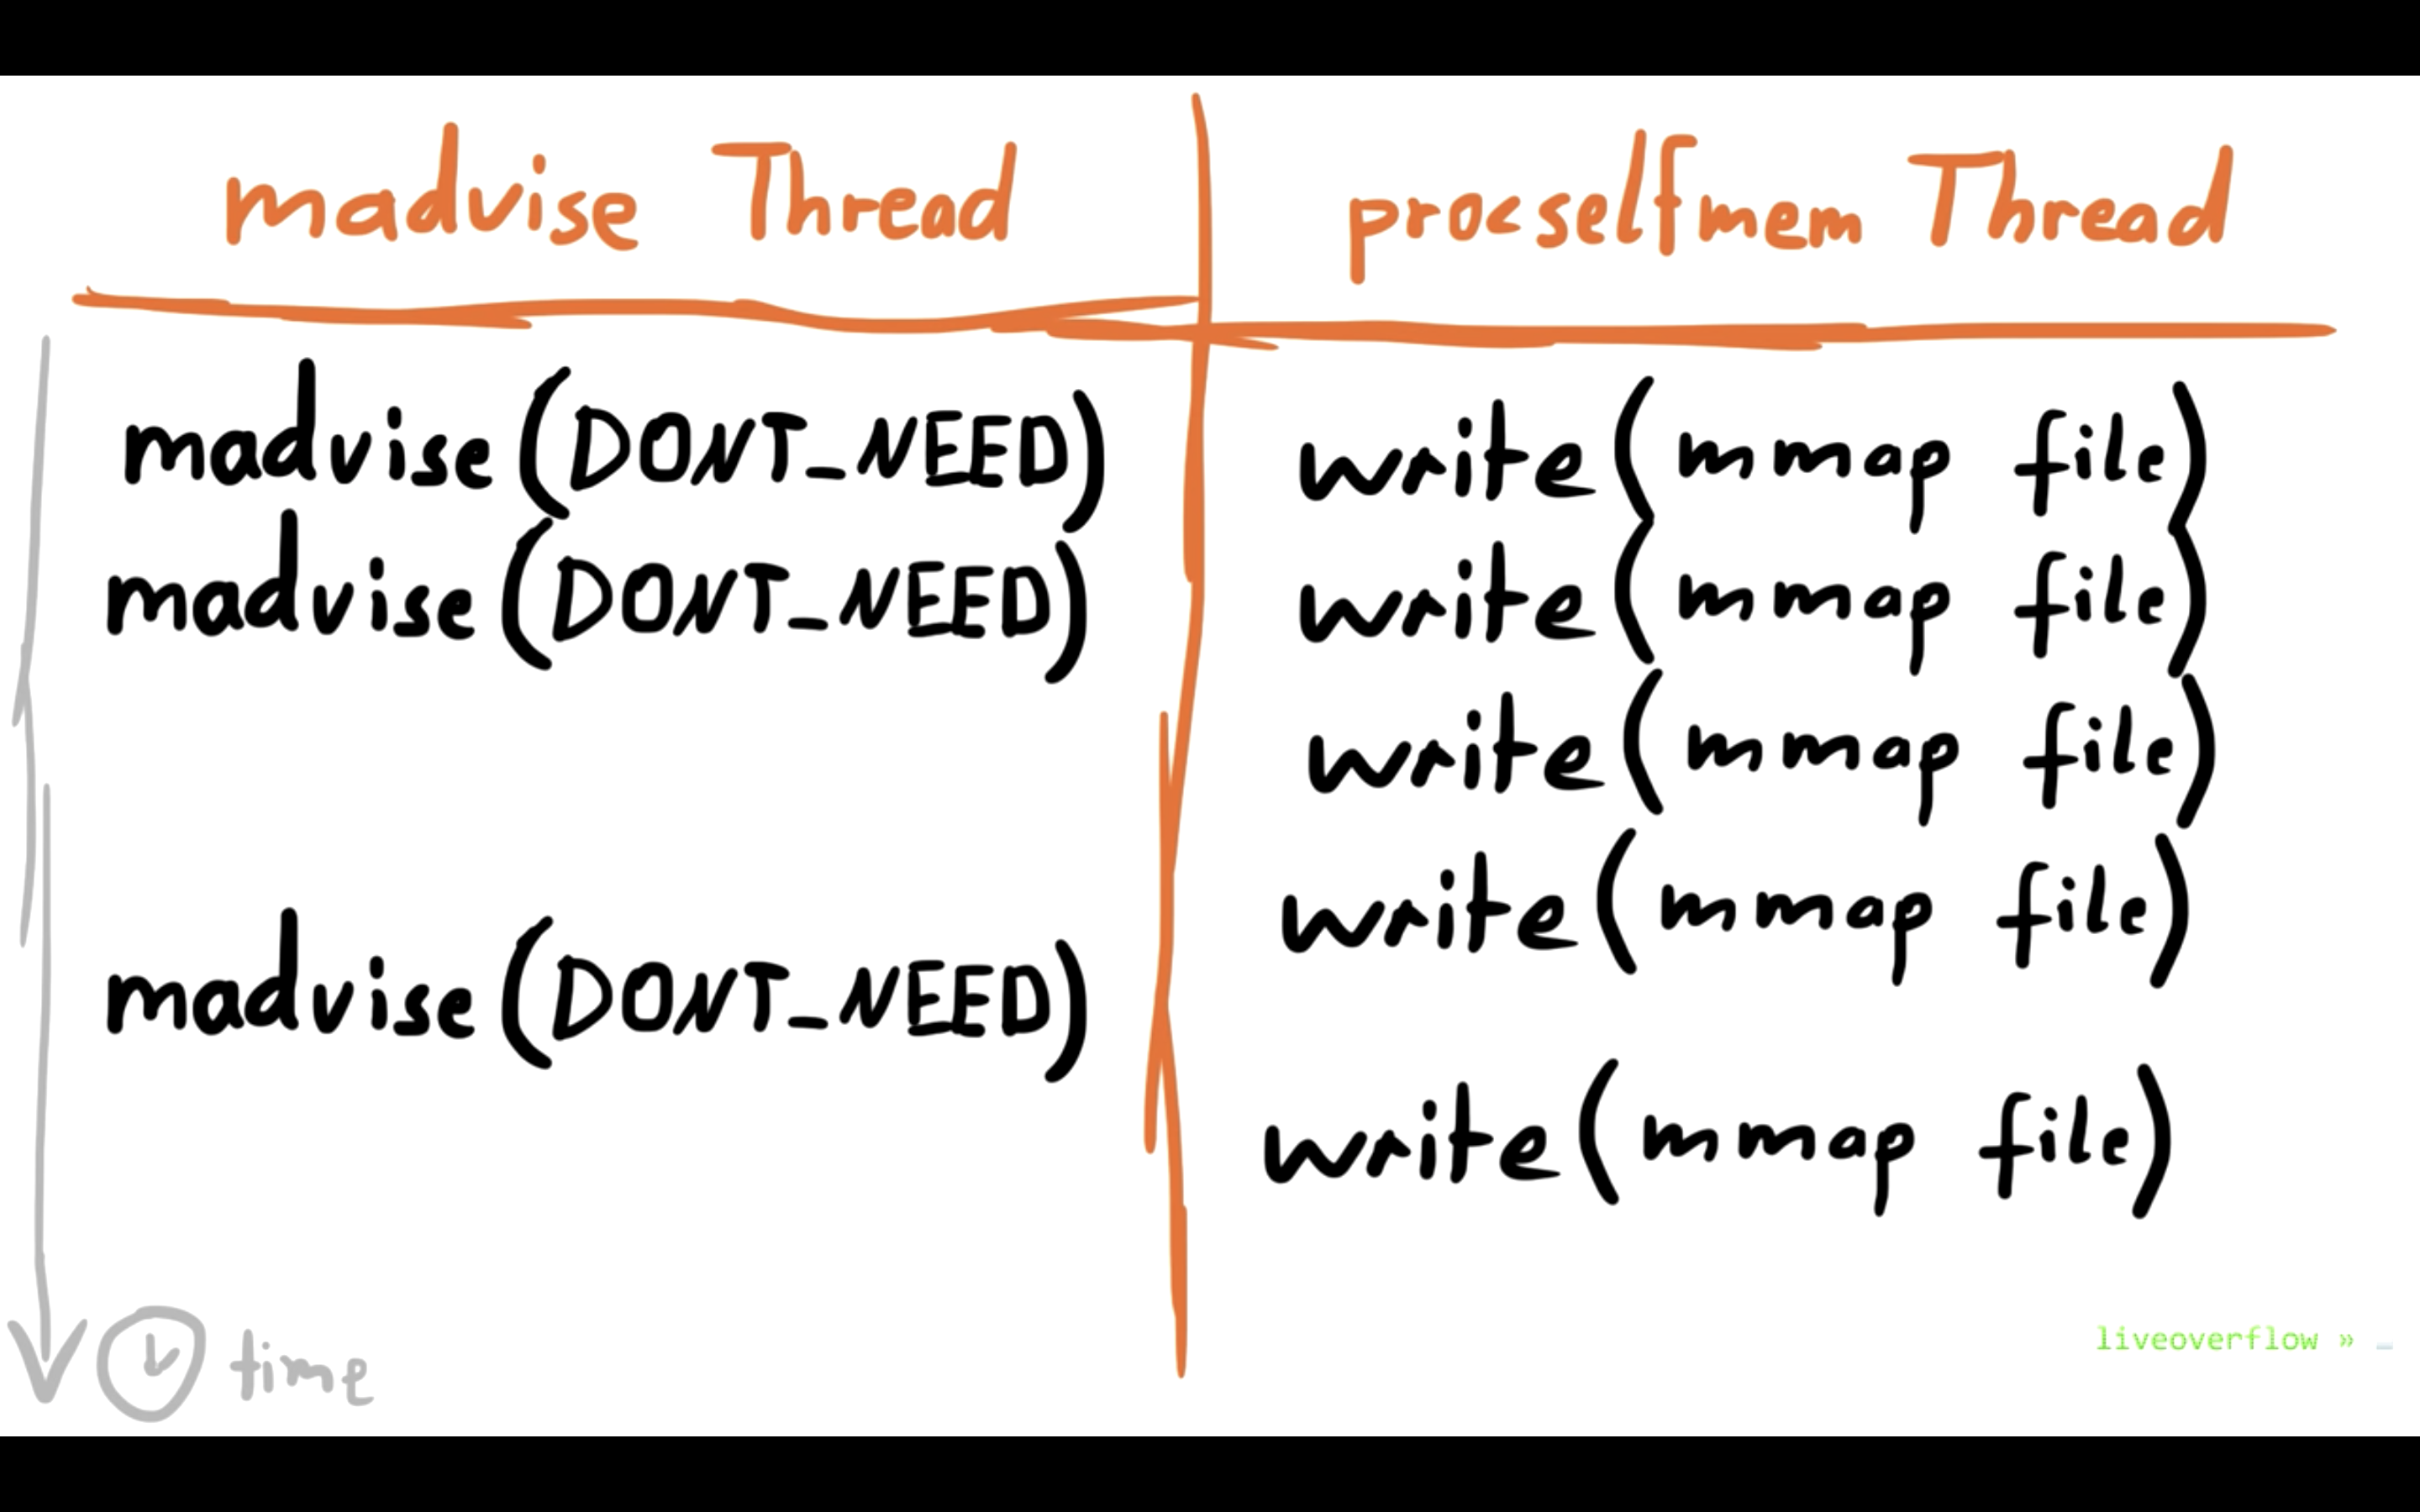 madvise Thread
procselfmem Thread
madvise(DONT_NEED)
write(mmap file)
madvise(DONT_NEED)
write(mmap file)
write(mmap file)
write(mmap file)
madvise(DONT_NEED)
write(mmap file)
time
liveoverflow » _